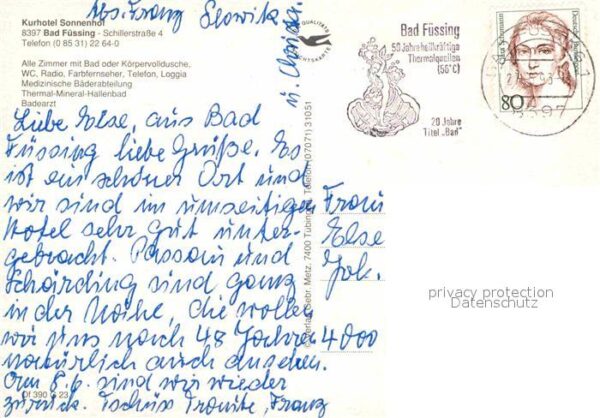 Abs. Franz Slowik
Kurhotel Sonnenhof
8397 Bad Füssing - Schillerstraße 4
Telefon (0 85 31) 22 64-0
Alle Zimmer mit Bad oder Körpervolldusche,
WC, Radio, Farbfernseher, Telefon, Loggia
Medizinische Bäderabteilung
Thermal-Mineral-Hallenbad
Badearzt
Liebe Else, aus Bad
Füssing liebe Grüße. Es
ist ein schöner Ort und
wir sind im umseitigen
Hotel sehr gut unter-
gebracht. Passau und
Schärding sind ganz
in der Nähe, die wollen
wir uns nach 48 Jahren
natürlich auch ansehen.
Am 8.6. sind wir wieder
zurück. Tschüß Traute, Franz
u. Christa.
Of 390 C 23
QUALITÄTS
Gebr. Metz, 7400 Tübingen, Telefon (07071) 31051
Bad Füssing
50 Jahre heilkräftige
Thermalquellen
(56°C)
20 Jahre
Titel „Bad"
Clara Schumann
Deutsche Bundespost
80
8397
Frau
Else
Jok.
4000
privacy protection
Datenschutz